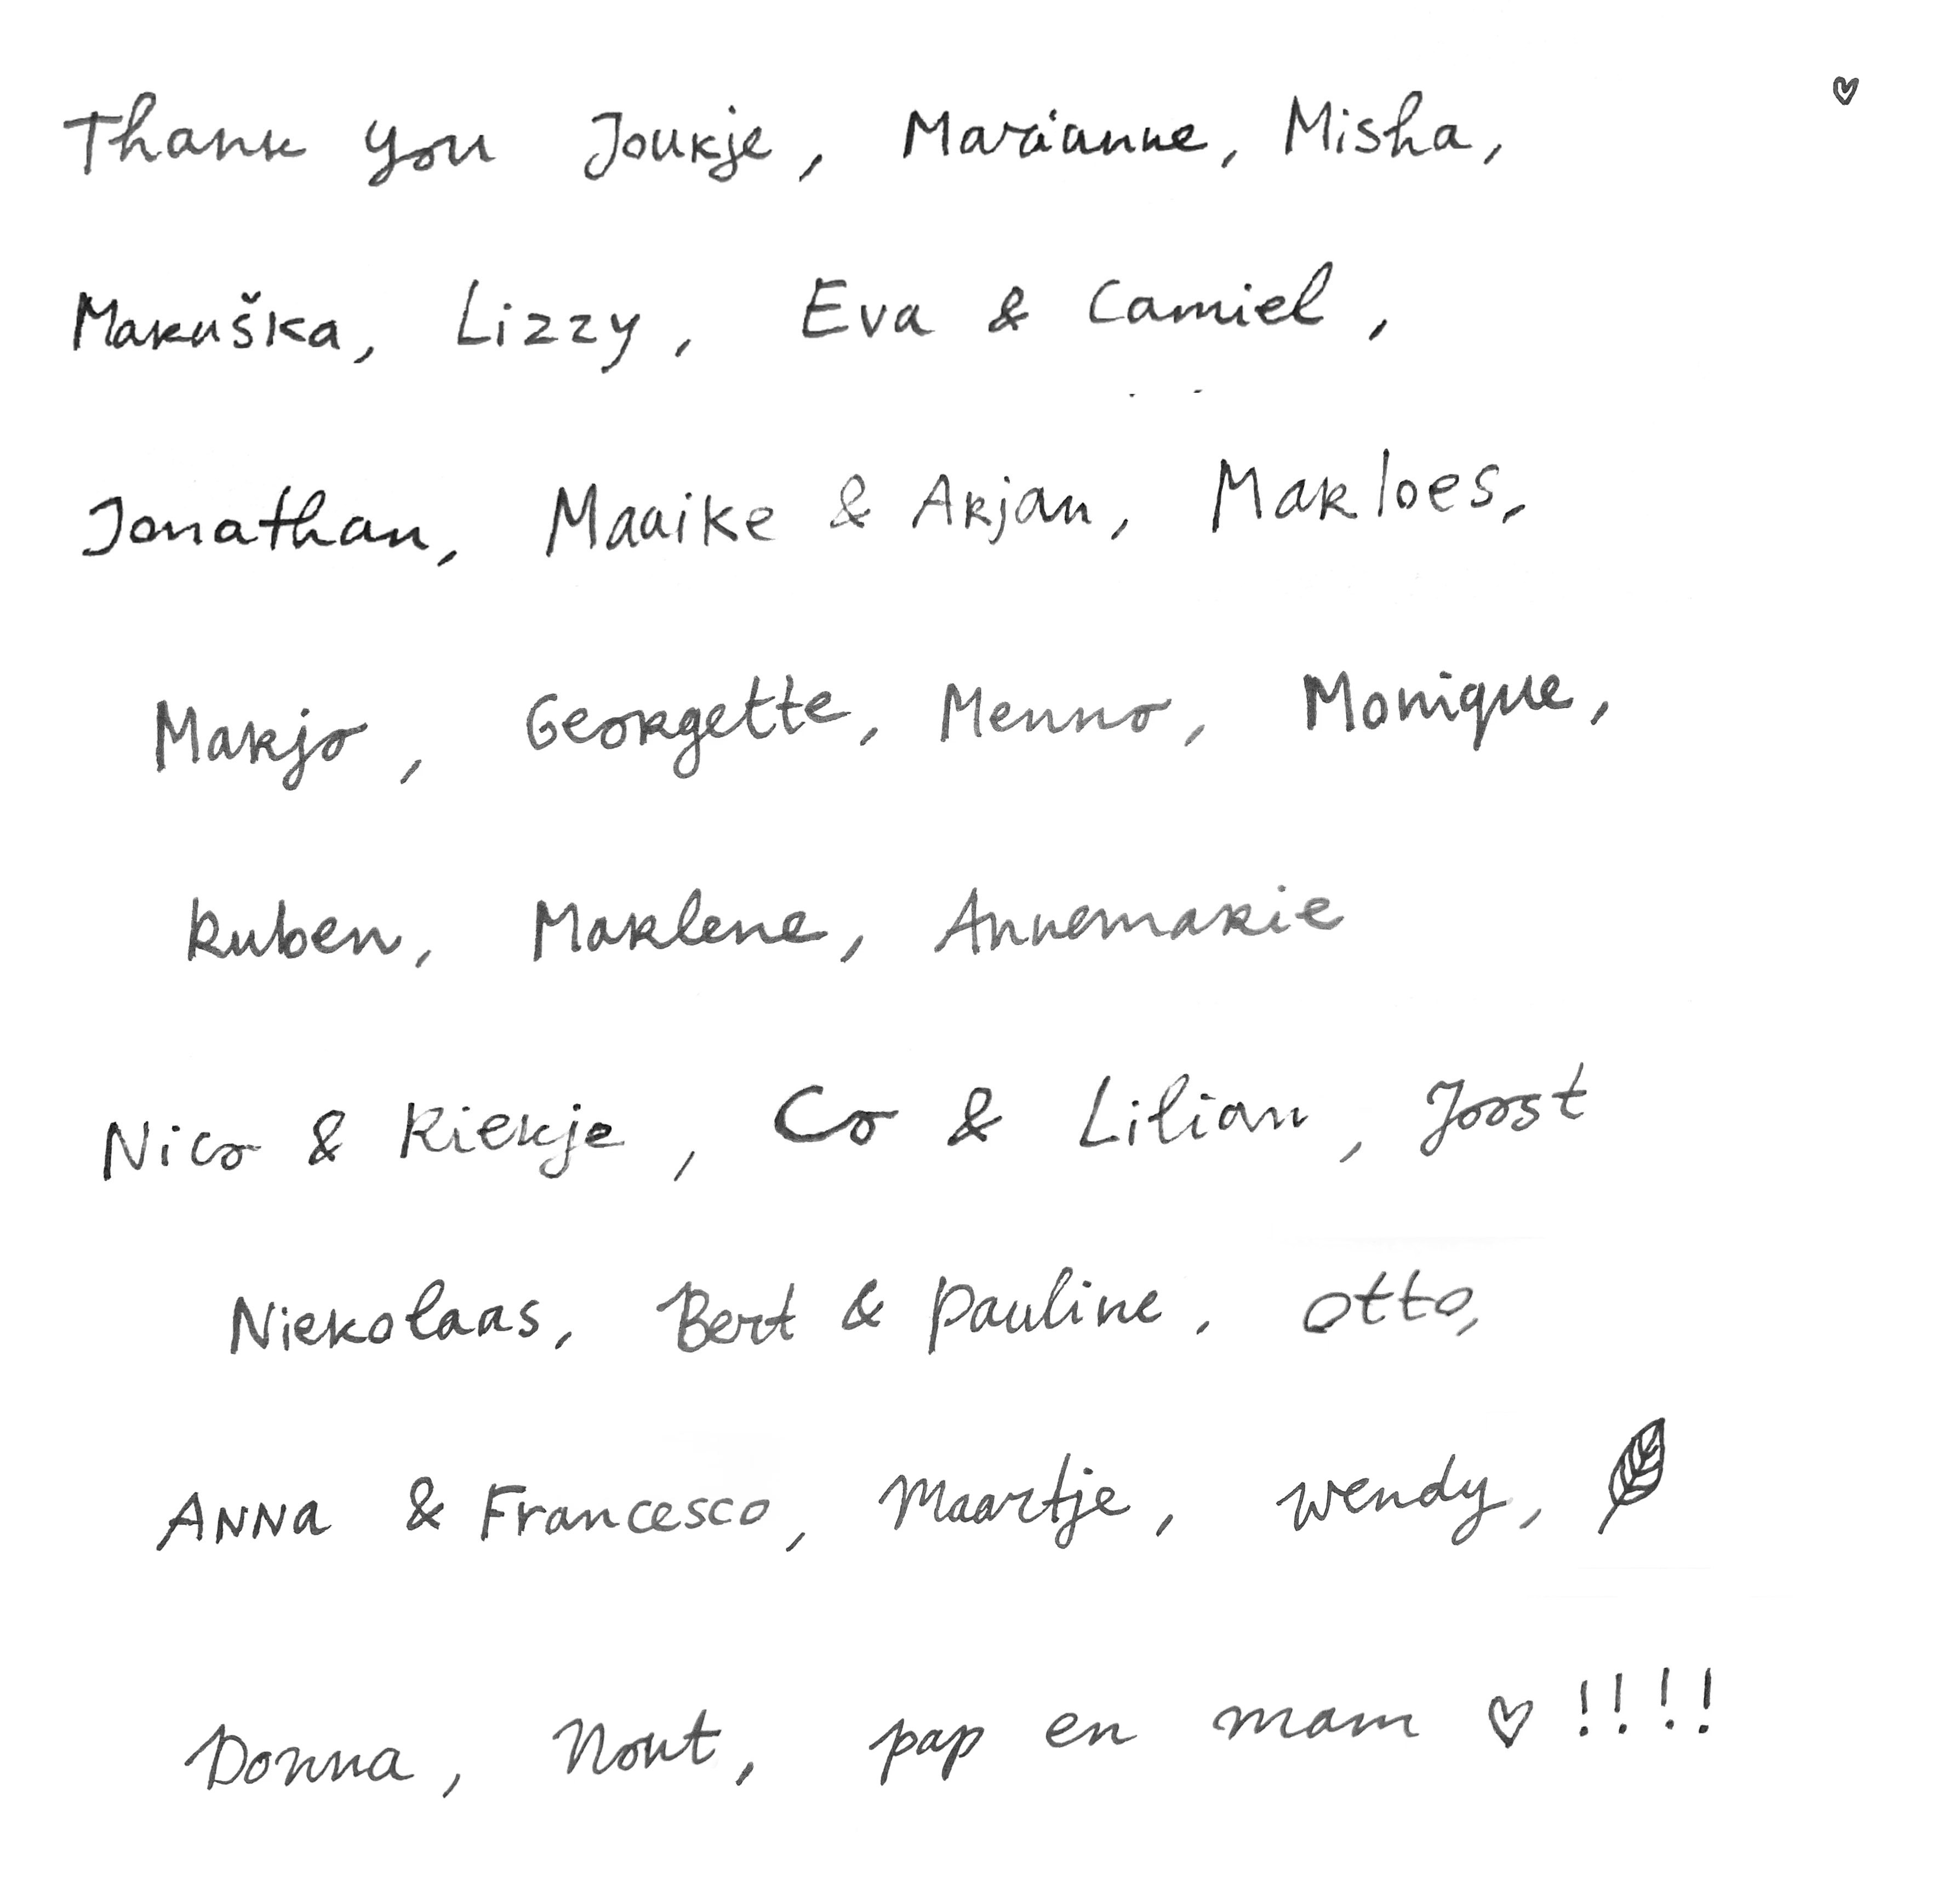 Thank you Joukje, Marianne, Misha,
Maruška, Lizzy, Eva & Camiel,
Jonathan, Maaike & Arjan, Marloes,
Marjo, Georgette, Menno, Monique,
Ruben, Marlene, Annemarie
Nico & Riekje, Co & Lilian, Joost
Niekolaas, Bert & Pauline, Otto,
Anna & Francesco, Maartje, Wendy,
Donna, Nout, pap en mam ♡ !!!!